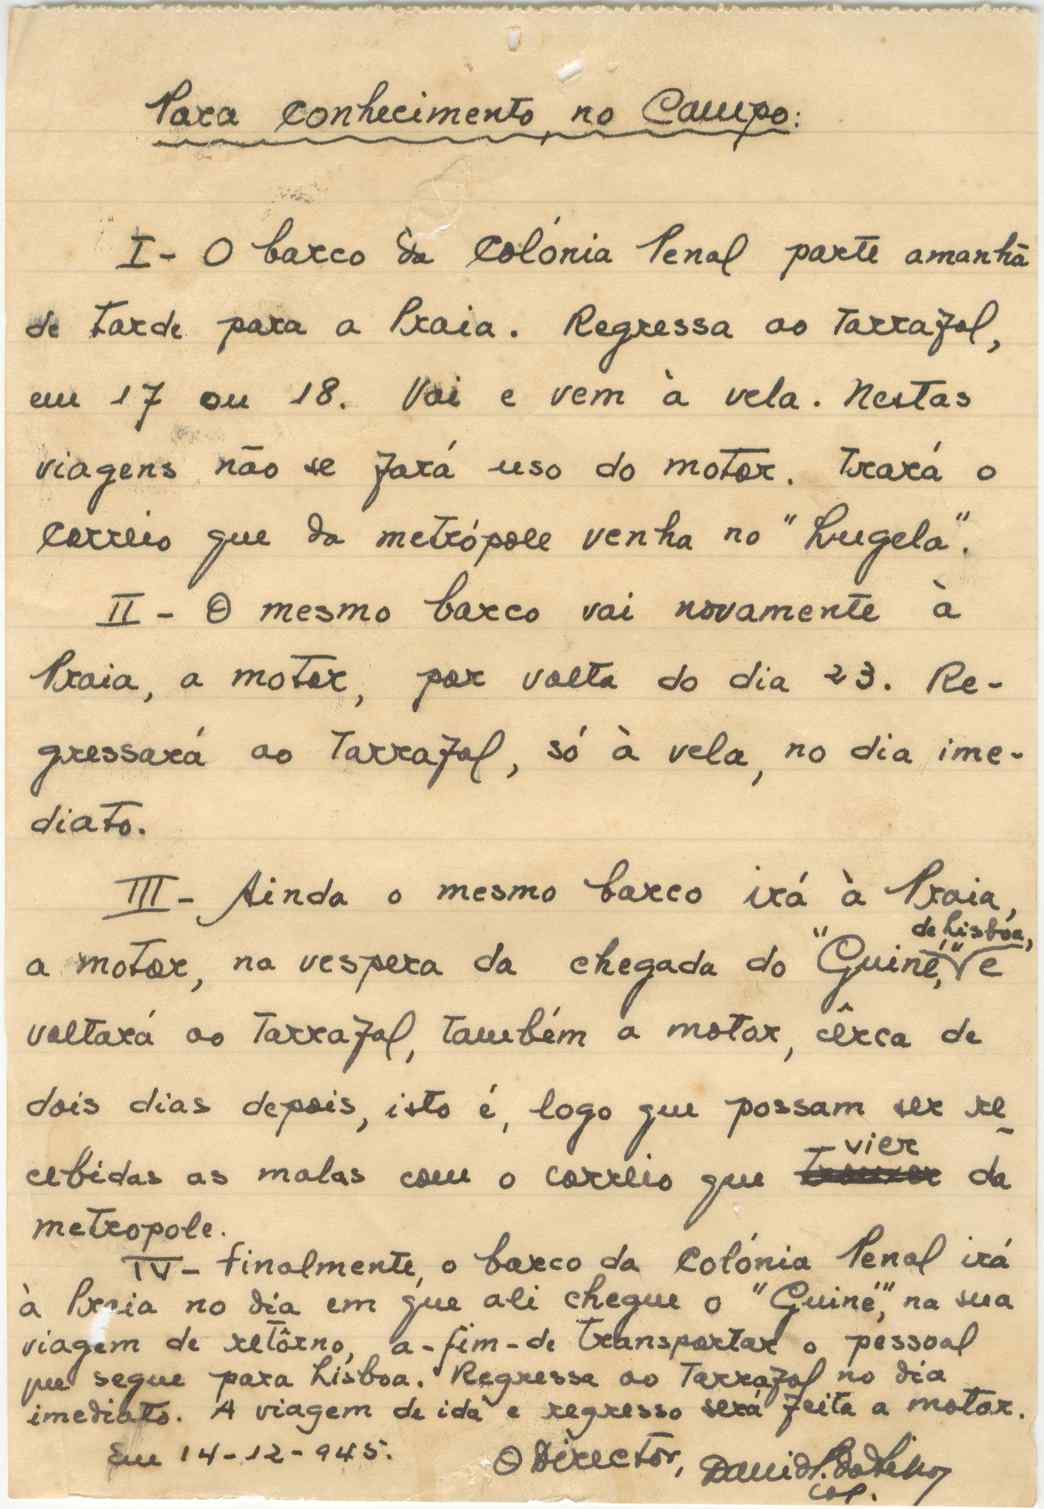 Para conhecimento no Campo:
I - O barco da Colónia Penal parte amanhã
de tarde para a Praia. Regressa ao Tarrafal,
em 17 ou 18. Vai e vem à vela. Nestas
viagens não se fará uso do motor. Trará o
correio que da metrópole venha no "Lugela".
II - O mesmo barco vai novamente à
Praia, a motor, por volta do dia 23. Re-
gressará ao Tarrafal, só à vela, no dia ime-
diato.
III - Ainda o mesmo barco irá à Praia,
de Lisbôa,
a motor, na vespera da chegada do "Guiné", e
voltará ao Tarrafal, também a motor, cêrca de
dois dias depois, isto é, logo que possam ser re-
vier
cebidas as malas com o correio que da
metropole.
IV - Finalmente, o barco da Colónia Penal irá
à Praia no dia em que ali chegue o "Guiné", na sua
viagem de retôrno, a-fim-de transportar o pessoal
que segue para Lisboa. Regressa ao Tarrafal no dia
imediato. A viagem de ida e regresso será feita a motor.
Em 14-12-945.
O Director,
David
cap.